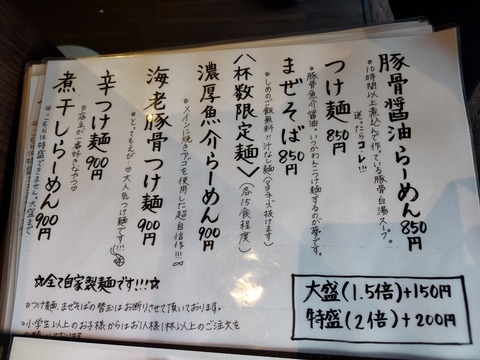 豚骨醤油らーめん 850円
◎10時間以上煮込んで作っている豚骨白湯スープ。
迷ったらコレ!!!
つけ麺 850円
◎豚骨魚介醤油。いつかわんこつけ麺するのが夢です。
まぜそば 850円
◎しめのご飯無料!!汁なし麺(マヨネーズ抜けます)
〈杯数限定麺〉(各15食程度)
濃厚魚介らーめん 900円
◎メインに焼きアゴを使用した超自信作!!!
海老豚骨つけ麺 900円
◎とってもえび♡大人気つけ麺です!!!
辛つけ麺 900円
◎店主が一番好きなやつ♡
◎こちらは特盛できません。大盛まで
煮干しらーめん 900円
☆全て自家製麺です!!!☆
大盛(1.5倍)+150円
特盛(2倍)+200円
◎つけ麺、まぜそばの替玉はお断りさせて頂いております。
◎小学生以上のお子様からはお1人様1杯以上のご注文を